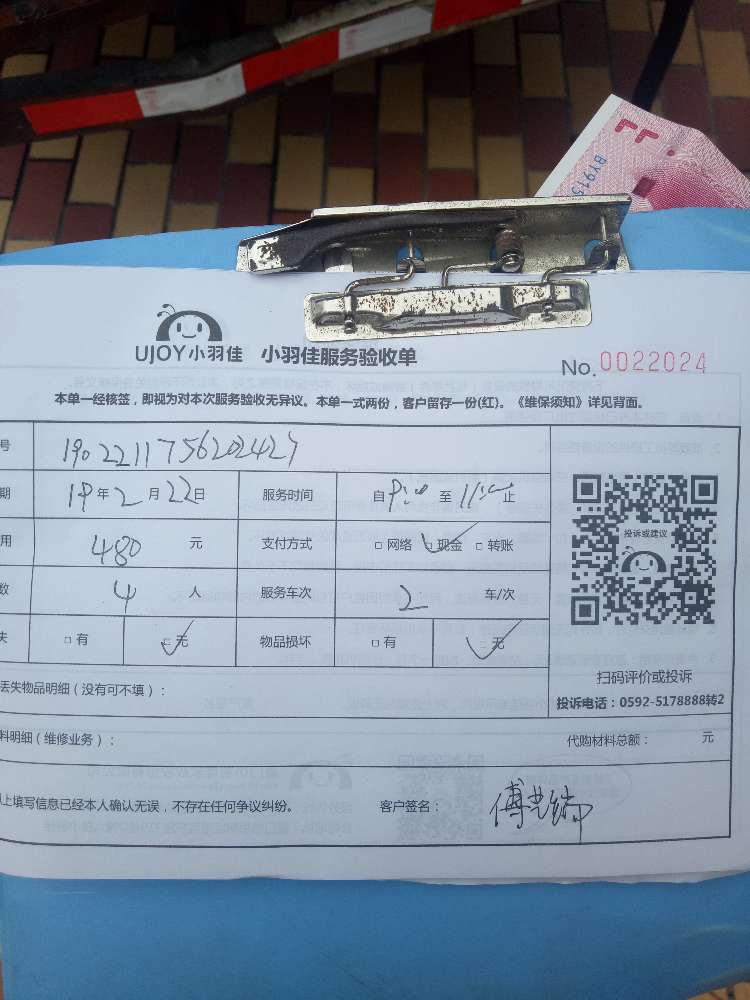 BY915
UJOY小羽佳 小羽佳服务验收单
No. 0022024
本单一经核签，即视为对本次服务验收无异议。本单一式两份，客户留存一份(红)。《维保须知》详见背面。
号
期 19年2月22日 服务时间 自 至 止
用 480 元 支付方式 □网络 □现金 □转账
投诉或建议
数 4 人 服务车次 2 车/次
失 □有 □无 物品损坏 □有 □无
扫码评价或投诉
丢失物品明细（没有可不填）：
投诉电话：0592-5178888转2
料明细（维修业务）： 代购材料总额： 元
以上填写信息已经本人确认无误，不存在任何争议纠纷。 客户签名：